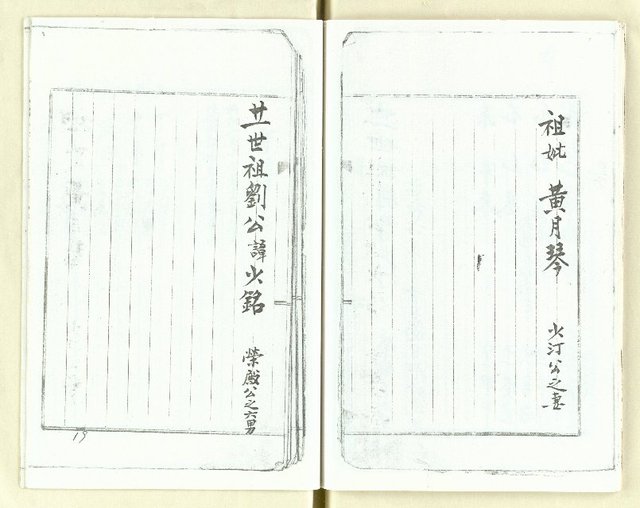 祖妣 黃月琴 火汀公之妻
廿一世祖劉公諱火銘 榮殿公之六男